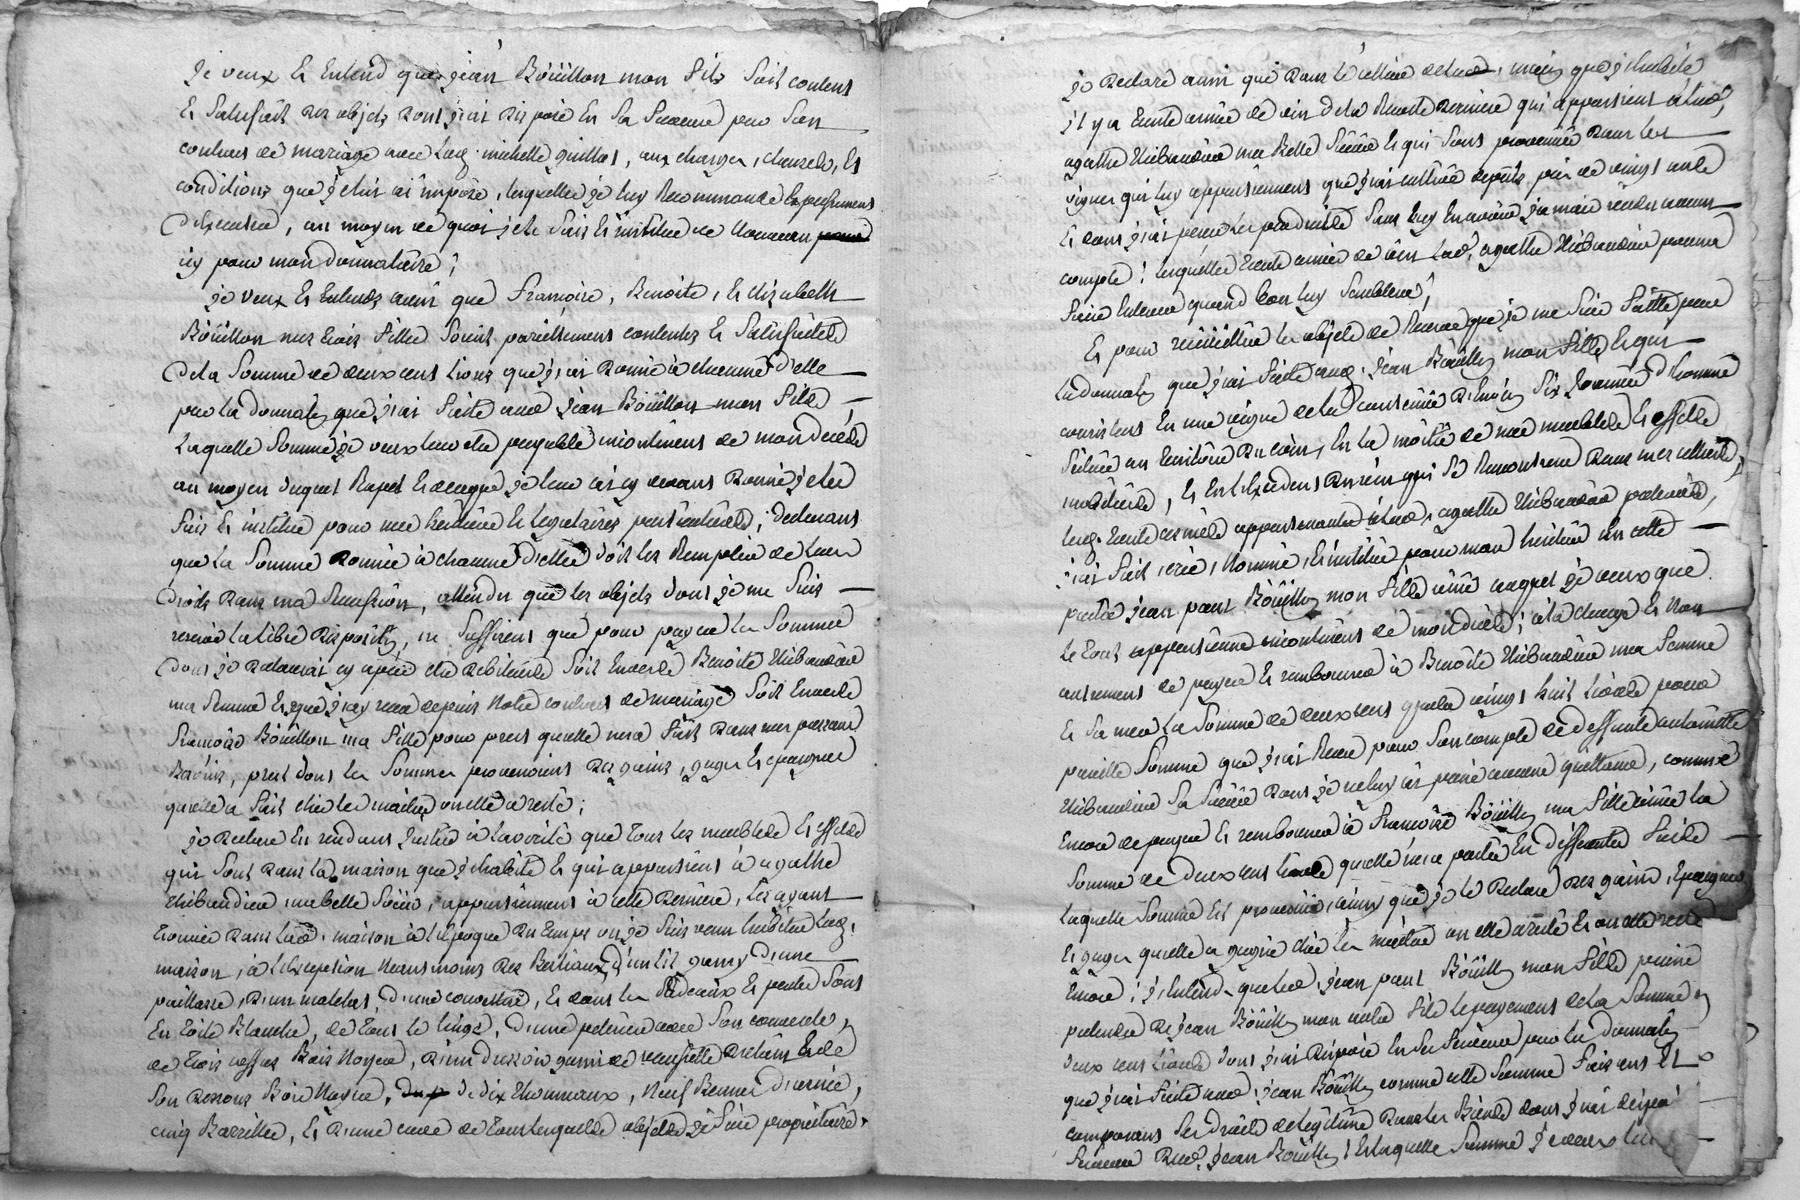 je veux Et Entend que jean Boüillon mon fils soit content
Et satisfait des objets dont j'ai disposé En sa faveur par son
contrat de mariage avec lad. michelle guillot, aux charges, clauses, Et
conditions que je lui ai imposé, lesquelles je luy Recommande Expressement
d'Executer, au moyen de quoi je le fais Et institue de Nouveau
icy pour mon donnataire;
je veux Et Entends aussi que francoise, Benoite, Et Elizabeth
Boüillon mes trois filles soient pareillement contentes Et satisfaites
de la somme de deux cens livres que j'ai donné à chacune d'elle
par la donnation que j'ai faite aud. jean Boüillon mon fils,
laquelle somme je veux leur etre payable incontinent de mon decéds
au moyen duquel Rapel Et que je leur ai cy devant donné je les
fais Et institue pour mes héritières Et légataires particulières; declarant
que la somme donnée à chacune d'elles doit les Remplir de leurs
droits dans ma succession, attendu que les objets dont je me suis
reservé la libre disposition, ne suffiront que pour payer les sommes
dont je declarerai cy après etre debiteur soit Envers Benoite thibaudier
ma femme Et que j'ay reçu depuis Notre contrat de mariage soit Envers
francoise Boüillon ma fille pour prets quelle m'a fait dans mes pressans
Besoins, prets dont les sommes provenoient des gains, gages Et epargnes
qu'elle a fait chez les maitres ou elle a resté;
je declare En rendant justice à la verité que tous les meubles Et effets
qui sont dans la maison que j'habite Et qui appartient à agathe
thibaudier ma belle soeur, appartiennent à cette derniere, les ayant
trouvé dans lad. maison à l'epoque du temps ou je suis venu habiter lad.
maison, à l'Exception neansmoins des Bestiaux, d'un lit garny d'une
paillasse, d'un matelas, d'une couverture, Et dont les Rideaux Et pentes sont
En toile Blanche, de tout le linge, d'une petrière avec son couvercle,
de trois coffres Bois Noyer, d'un dressoir garni de vaisselle d'etain Et de
son dessous Bois Noyer, de dix thonneaux, neuf Bennes
cinq Barrilles, Et d'une cuve de tous lesquels objets je suis propriétaire.
je declare aussi que dans le cellier de lad. maison que j'habite
il y a trente annés de vin de la Recolte derniere qui appartient à lad.
agathe thibaudier ma Belle soeur Et qui sont provenues dans les
vignes qui luy appartiennent que j'ai cultivé depuis près de vingt ans
Et dont j'ai perçu les produits sans luy En avoir jamais rendu aucun
compte; lesquelles trente annés de vin lad. agathe thibaudier pourra
faire Enlever quand bon luy semblera;
Et pour recüeillir les objets de Reserve que je me suis faitte par
la donnation que j'ai faite aud. jean Boüillon mon fils Et qui
consistent En une vigne de la contenue d'Environ six journées d'homme
située au territoire du En la moitié de mes meubles Et effets
mobiliers, Et En l'Excedent du vin qui se Rencontrera dans mes celliers,
les trente annés appartenantes à lad. agathe thibaudier prelevées,
j'ai fait, crée, Nommé, Et institué pour mon heritier En cette
partie jean paul Boüillon mon fils ainé auquel je veux que
le tout appartienne incontinent de mon decès; à la charge Et Non
autrement de payer Et rembourser à Benoite thibaudier ma femme
Et sa mere la somme de deux cens quatre vingt huit livres pour
pareille somme que j'ai Reçu pour son compte de deffunte antoinette
thibaudier sa soeur dont je ne luy ai passé aucune quittance, comme
Encore de payer Et rembourser à francoise Boüillon ma fille ainée la
somme de deux cens livres quelle m'a pretée En differentes fois
laquelle somme Est provenue, ainsy que je le declare des gains, Epargnes
Et gages quelle a gagné chés les maitres ou elle a resté Et ou elle reste
Encore; j'Entends que led. jean paul Boüillon mon fils puisse
pretendre de jean Boüillon mon autre fils le payement de la somme
deux cens livres dont j'ai disposé En sa faveur par la donnation
que j'ai faite aud. jean Boüillon comme cette somme faisant Et
composant ses droits de legitime dans les Biens dont j'ai disposé
faveur dud. jean Boüillon; Et laquelle somme je veux